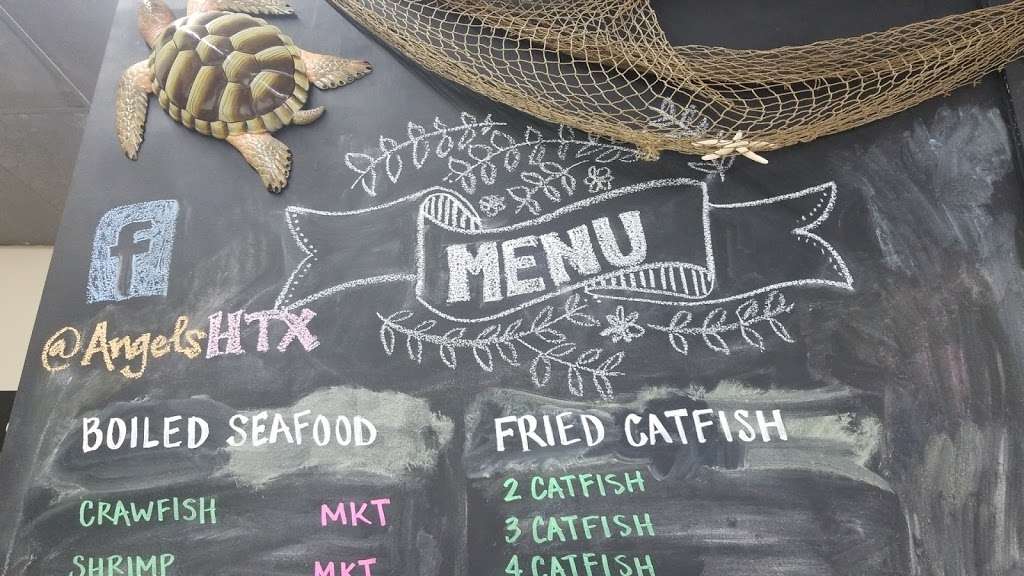 MENU
f
@AngelsHTX
BOILED SEAFOOD
CRAWFISH MKT
SHRIMP MKT
FRIED CATFISH
2 CATFISH
3 CATFISH
4 CATFISH